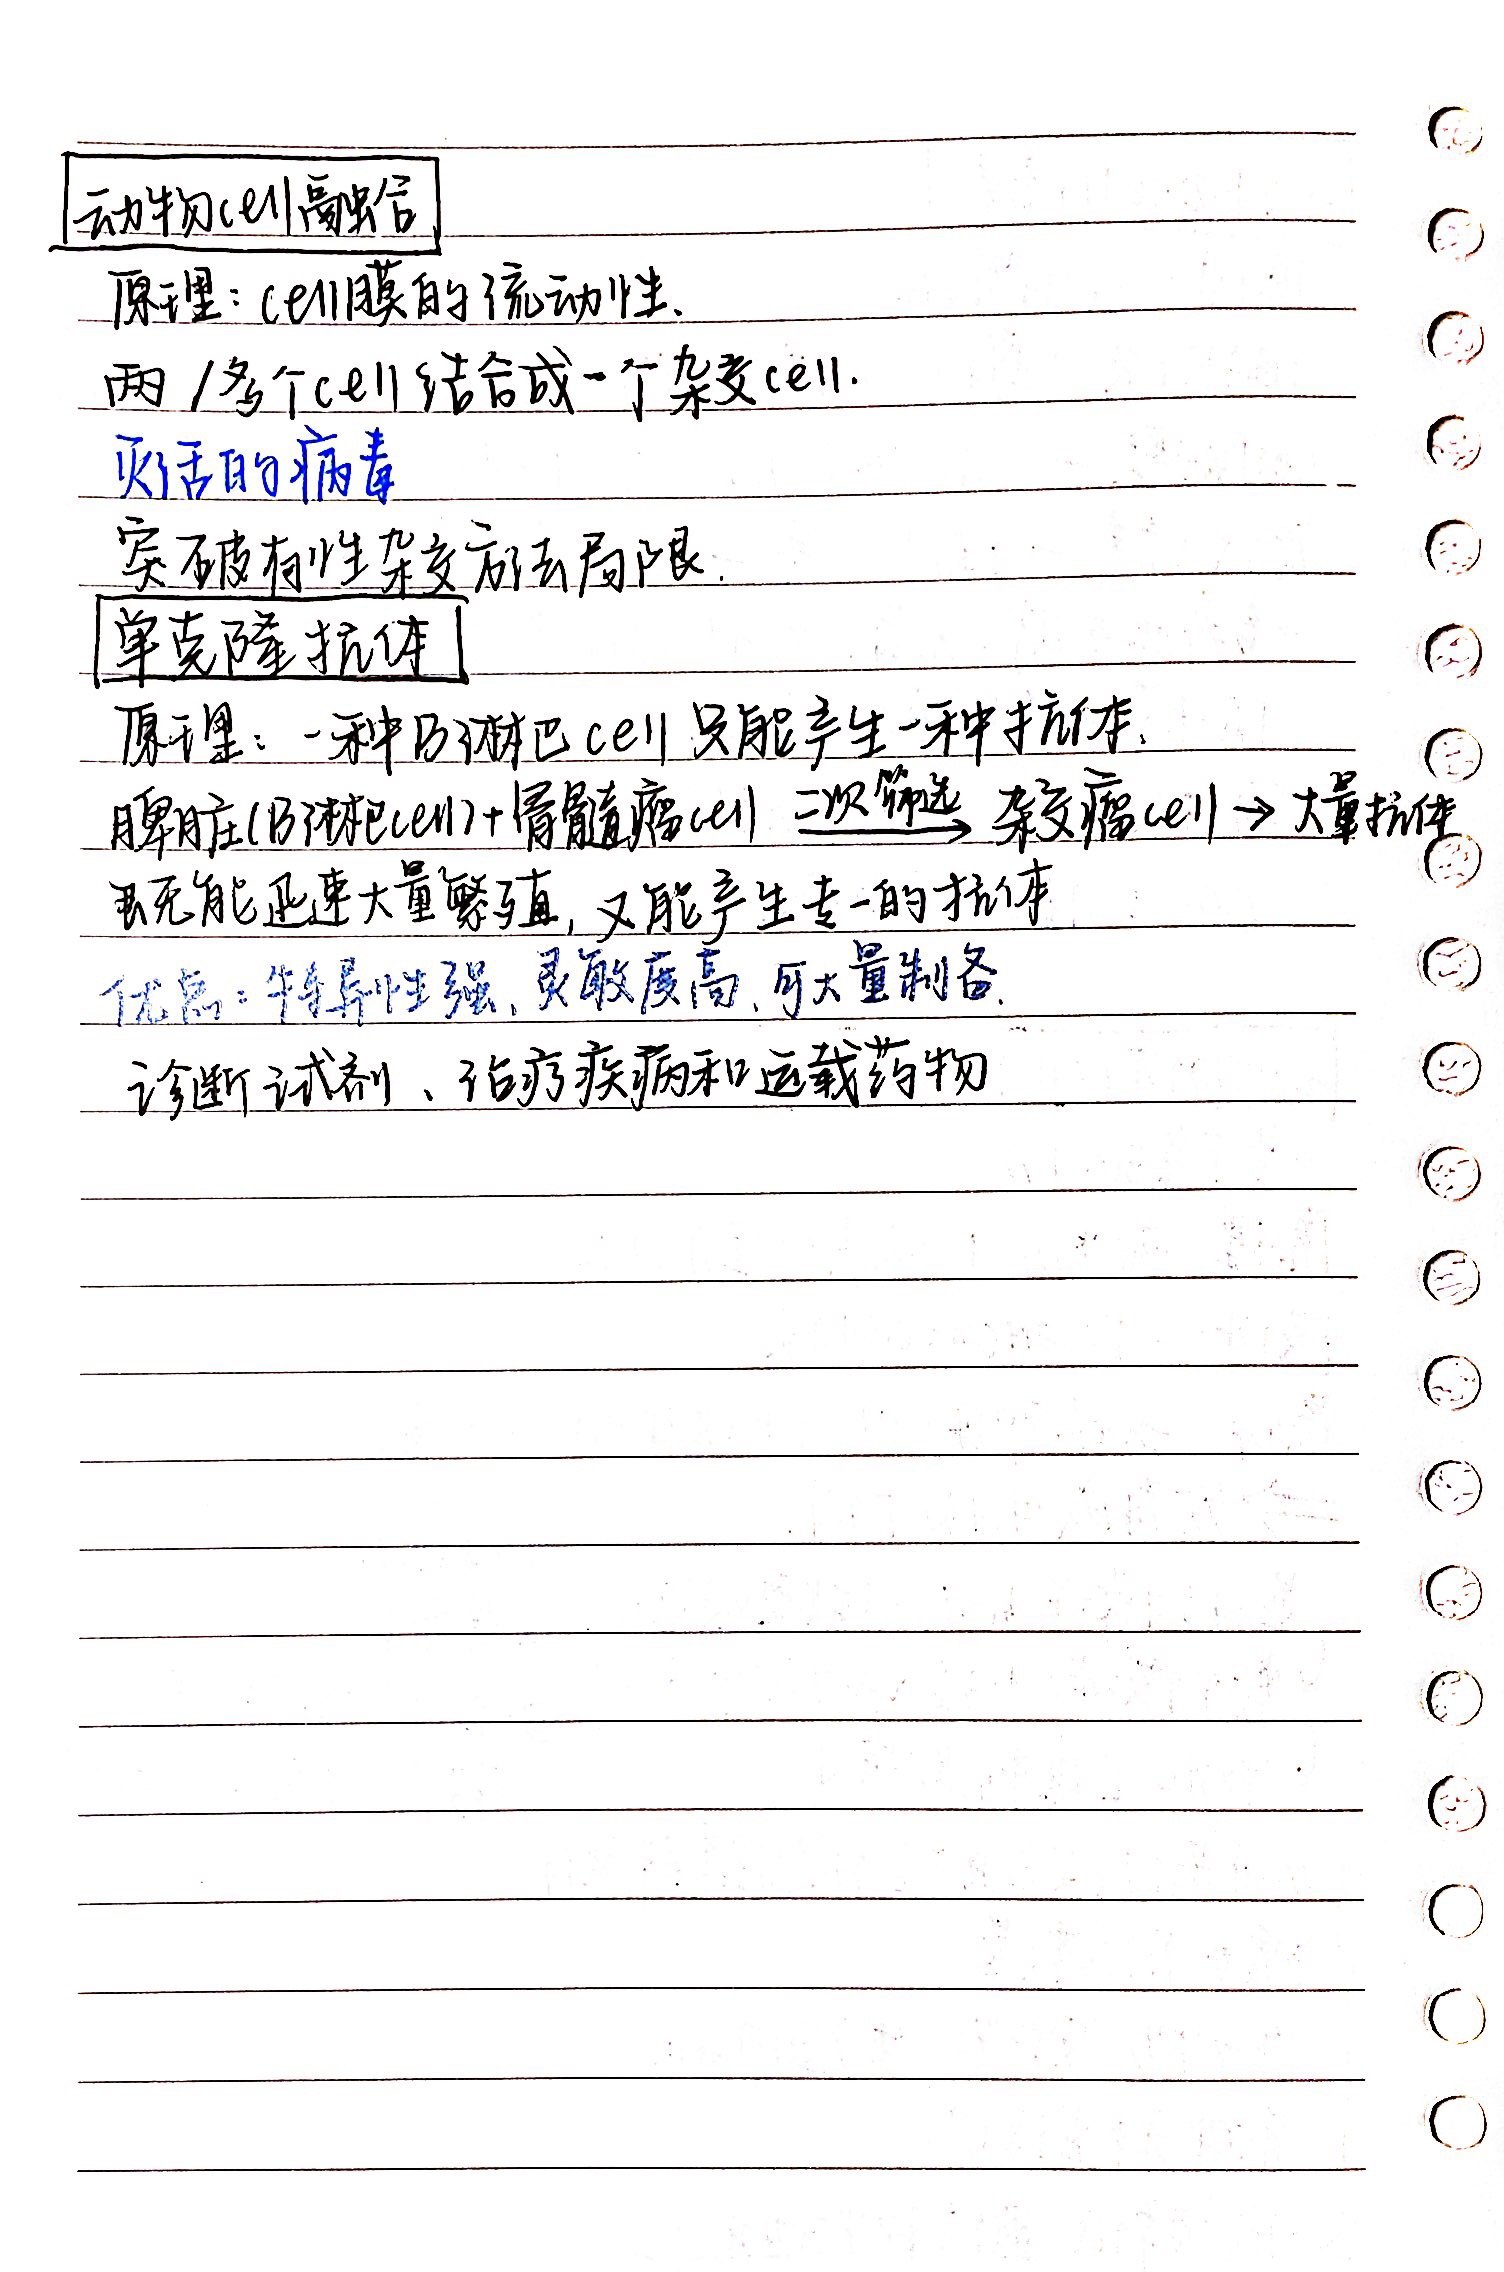 动物cell融合
原理：cell膜的流动性.
两/多个cell结合成一个杂交cell.
灭活的病毒
突破有性杂交方法局限.
单克隆抗体
原理：一种B淋巴cell只能产生一种抗体.
脾脏(B淋巴cell)+骨髓瘤cell 二次筛选→ 杂交瘤cell→大量抗体
既能迅速大量繁殖,又能产生专一的抗体
优点：特异性强、灵敏度高、可大量制备.
诊断试剂、治疗疾病和运载药物